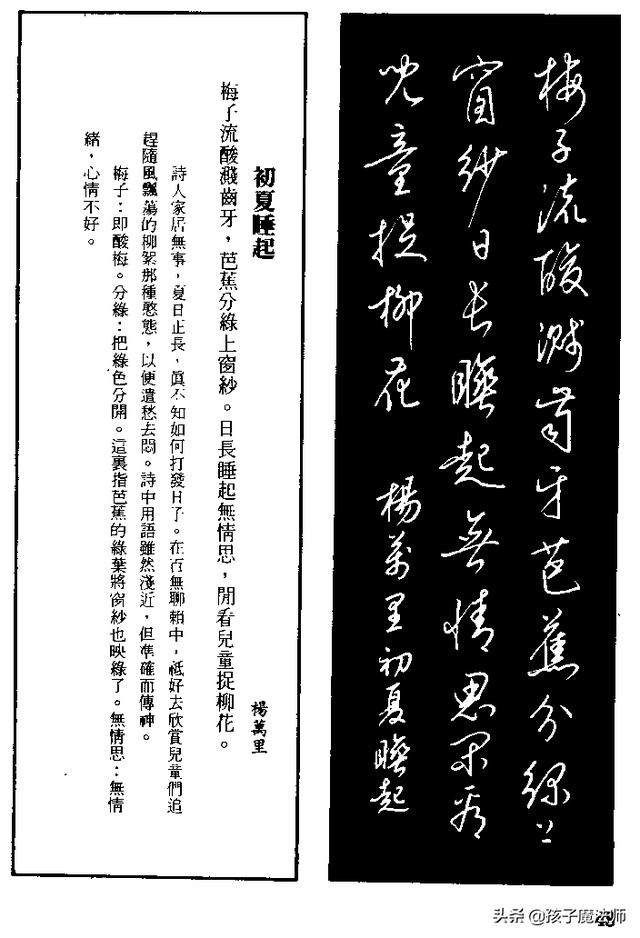 梅子流酸濺齒牙芭蕉分綠上
窗紗日長睡起無情思閒看
兒童捉柳花 楊萬里初夏睡起
初夏睡起 楊萬里
梅子流酸濺齒牙，芭蕉分綠上窗紗。日長睡起無情思，閒看兒童捉柳花。
詩人家居無事，夏日正長，眞不知如何打發日子。在百無聊賴中，祗好去欣賞兒童們追
趕隨風飄蕩的柳絮那種憨態，以便遣愁去悶。詩中用語雖然淺近，但準確而傳神。
梅子：即酸梅。分綠：把綠色分開。這裏指芭蕉的綠葉將窗紗也映綠了。無情思：無情
緒，心情不好。
头条 @孩子魔法师